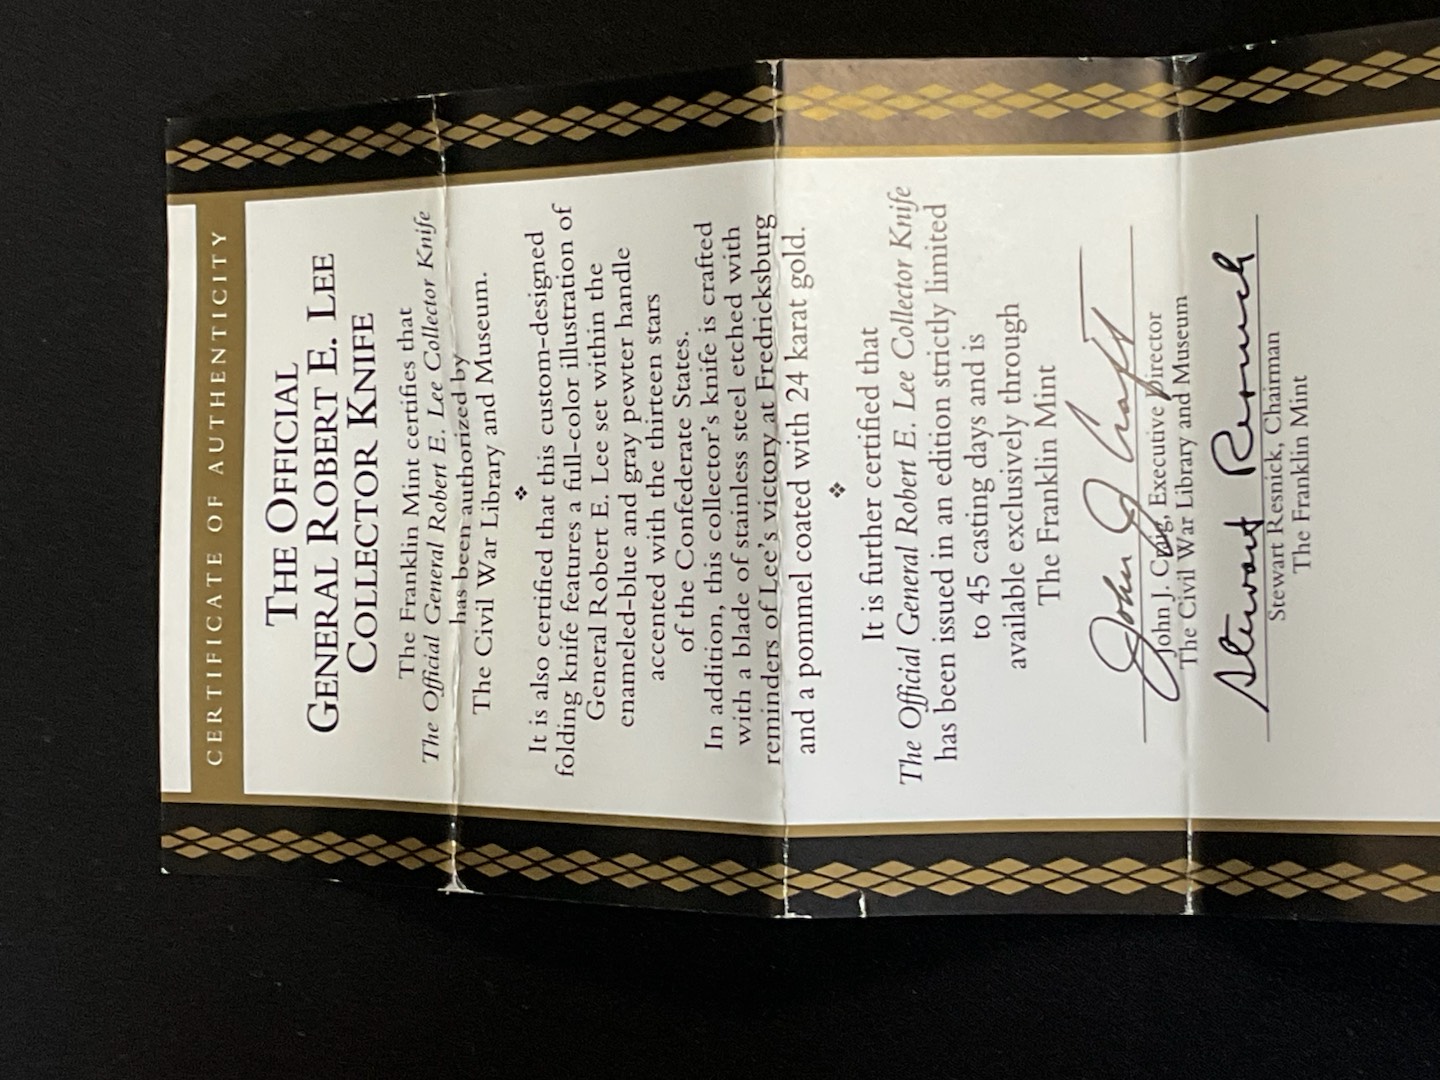 CERTIFICATE OF AUTHENTICITY
THE OFFICIAL
GENERAL ROBERT E. LEE
COLLECTOR KNIFE
The Franklin Mint certifies that
The Official General Robert E. Lee Collector Knife
has been authorized by
The Civil War Library and Museum.
❖
It is also certified that this custom-designed
folding knife features a full-color illustration of
General Robert E. Lee set within the
enameled-blue and gray pewter handle
accented with the thirteen stars
of the Confederate States.
In addition, this collector's knife is crafted
with a blade of stainless steel etched with
reminders of Lee's victory at Fredricksburg
and a pommel coated with 24 karat gold.
❖
It is further certified that
The Official General Robert E. Lee Collector Knife
has been issued in an edition strictly limited
to 45 casting days and is
available exclusively through
The Franklin Mint
John J. Craft
John J. Craig, Executive Director
The Civil War Library and Museum
Stewart Resnick
Stewart Resnick, Chairman
The Franklin Mint